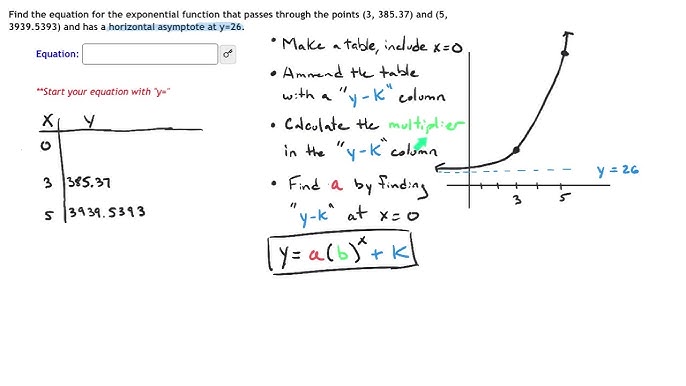 Find the equation for the exponential function that passes through the points (3, 385.37) and (5,
3939.5393) and has a horizontal asymptote at y=26.
Equation:
**Start your equation with "y="
X Y
0
3 385.37
5 3939.5393
• Make a table, include x=0
• Ammend the table
with a "y-K" column
• Calculate the multiplier
in the "y-K" column
• Find a by finding
"y-K" at x=0
y = a(b)^x + K
y = 26
3 5